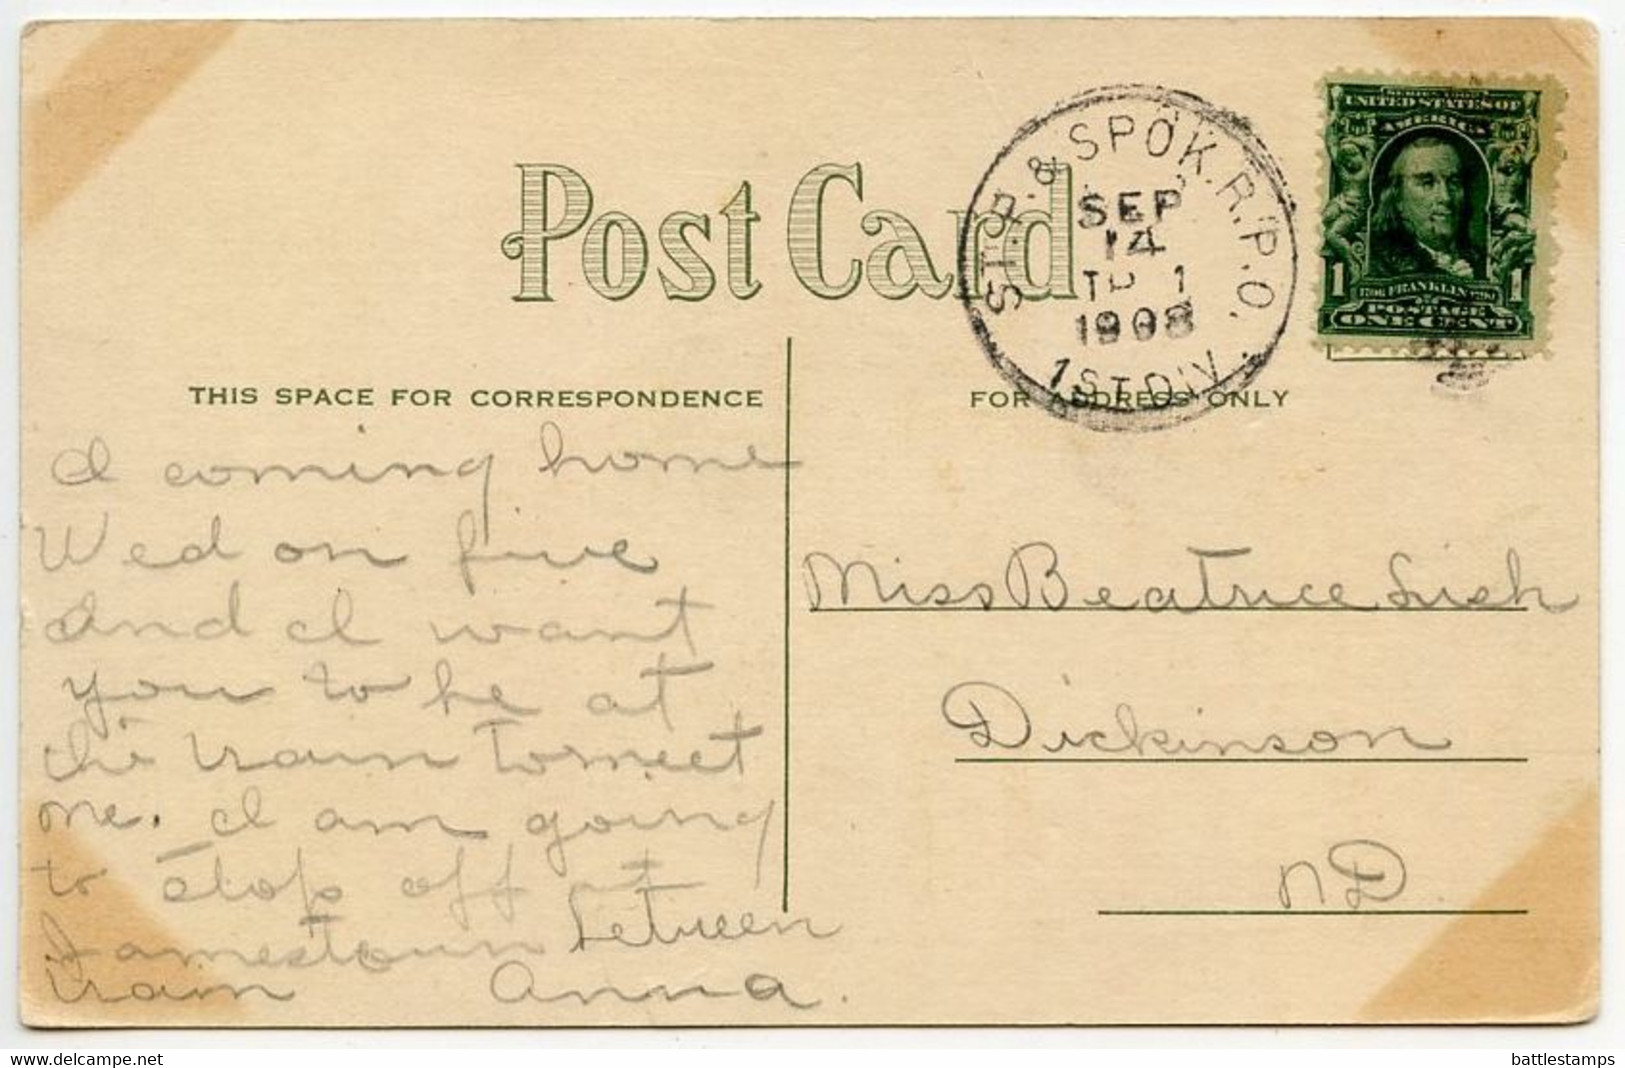 Post Card
ST. P. & SPOK. R.P.O.
SEP
14
TR 1
1908
1ST DIV.
SERIES 1902
UNITED STATES OF
AMERICA
1 1706 FRANKLIN 1790 1
POSTAGE
ONE CENT
THIS SPACE FOR CORRESPONDENCE
FOR ADDRESS ONLY
I coming home
Wed on five
and I want
you to be at
the train to meet
me. I am going
to stop off at
Jamestown between
train Anna.
Miss Beatrice Lish
Dickinson
ND.
delcampe.net
battlestamps